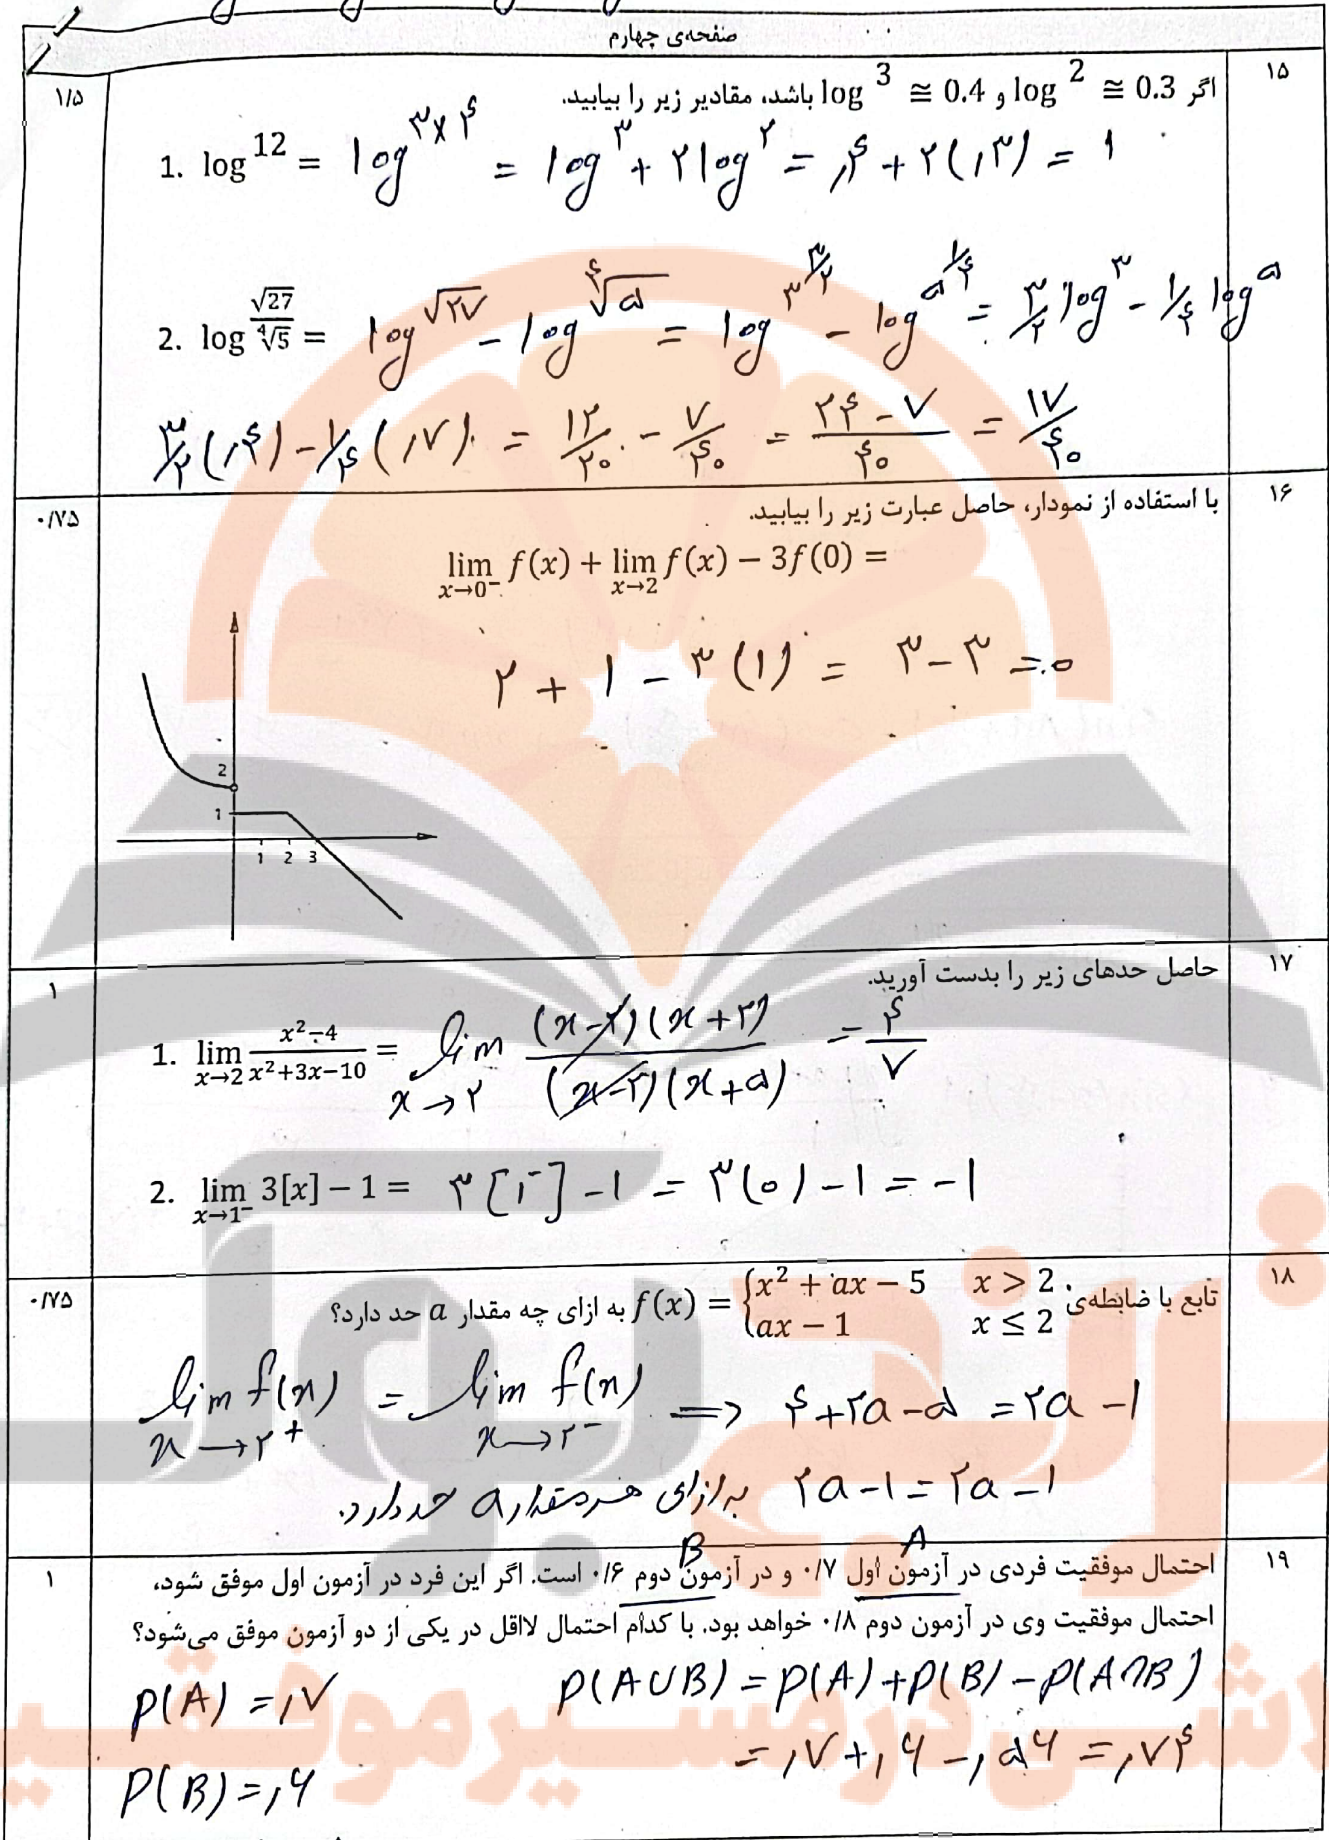 صفحه‌ی چهارم
۱۵
اگر log 2 ≅ 0.3 و log 3 ≅ 0.4 باشد، مقادیر زیر را بیابید.
۱/۵
1. log 12 = log ۳×۴ = log ۳ + ۲ log ۲ = ,۴ + ۲(,۳) = ۱
2. log √27/∜5 = log √۲۷ - log ∜۵ = log ۳^۳/۲ - log ۵^۱/۴ = ۳/۲ log ۳ - ۱/۴ log ۵
۳/۲ (,۴) - ۱/۴ (,۷) = ۱۲/۲۰ - ۷/۴۰ = ۲۴-۷/۴۰ = ۱۷/۴۰
۱۶
با استفاده از نمودار، حاصل عبارت زیر را بیابید.
۰/۷۵
lim x→0⁻ f(x) + lim x→2 f(x) − 3f(0) =
۲ + ۱ - ۳(۱) = ۳-۳ = ۰
2
1
1 2 3
۱۷
حاصل حدهای زیر را بدست آورید.
۱
1. lim x→2 x²−4/x²+3x−10 = lim x→۲ (x-۲)(x+۲)/(x-۲)(x+۵) = ۴/۷
2. lim x→1⁻ 3[x] − 1 = ۳[۱⁻] -۱ = ۳(۰) -۱ = -۱
۱۸
تابع با ضابطه‌ی f(x) = {x² + ax − 5 x > 2 به ازای چه مقدار a حد دارد؟
ax − 1 x ≤ 2
۰/۷۵
lim x→۲⁺ f(x) = lim x→۲⁻ f(x) ⟹ ۴+۲a-۵ = ۲a-۱
۲a-۱ = ۲a-۱ به ازای هر مقدار a حد دارد.
A
B
۱۹
احتمال موفقیت فردی در آزمون اول ۰/۷ و در آزمون دوم ۰/۶ است. اگر این فرد در آزمون اول موفق شود،
۱
احتمال موفقیت وی در آزمون دوم ۰/۸ خواهد بود. با کدام احتمال لااقل در یکی از دو آزمون موفق می‌شود؟
P(A) = ,۷ P(A∪B) = P(A) + P(B) - P(A∩B)
= ,۷ + ,۶ - ,۵۶ = ,۷۴
P(B) = ,۶
ترنج بوک
تلاشی در مسیر موفقیت